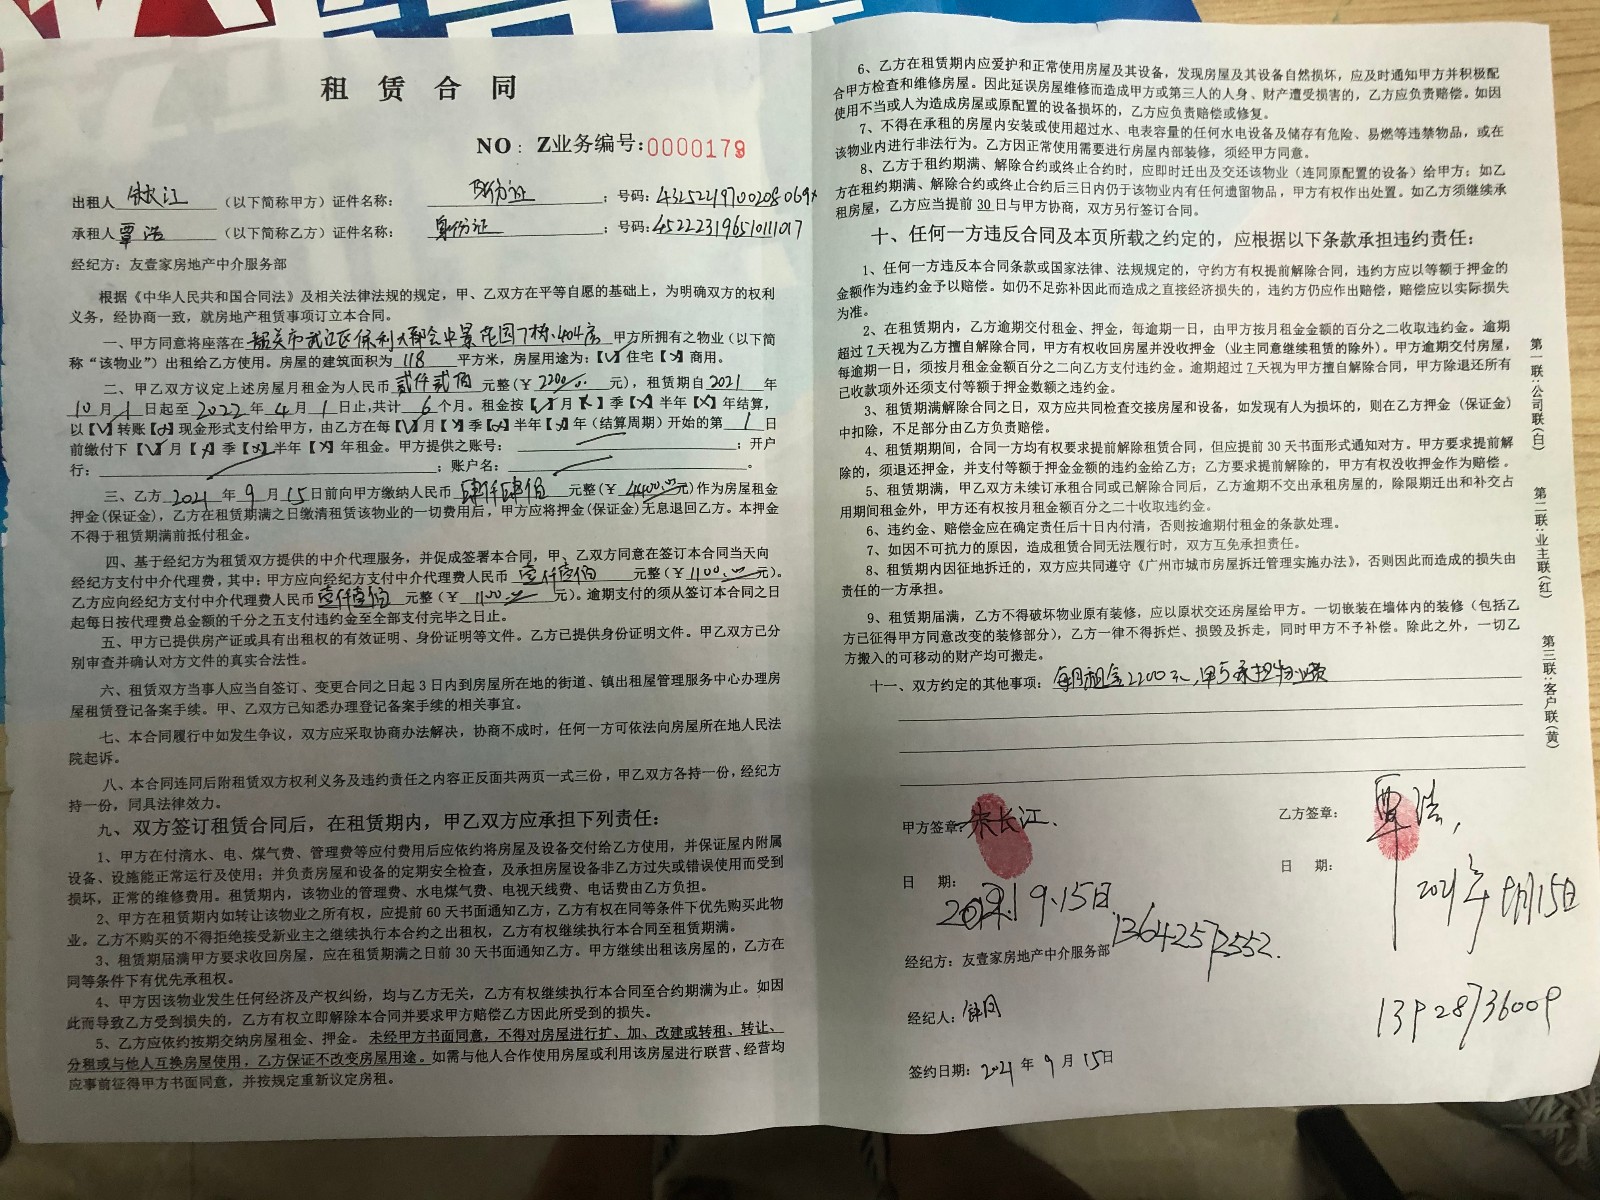 租赁合同
NO：Z业务编号:0000179
出租人 （以下简称甲方）证件名称： 身份证 ；号码：43252219700208069X
承租人 覃浩 （以下简称乙方）证件名称： 身份证 ；号码：452223196510111017
经纪方：友壹家房地产中介服务部
根据《中华人民共和国合同法》及相关法律法规的规定，甲、乙双方在平等自愿的基础上，为明确双方的权利
义务，经协商一致，就房地产租赁事项订立本合同。
一、甲方同意将座落在 韶关市武江区保利大都会中景花园7栋.404房 甲方所拥有之物业（以下简
称“该物业”）出租给乙方使用。房屋的建筑面积为 118 平方米，房屋用途为：【√】住宅【×】商用。
二、甲乙双方议定上述房屋月租金为人民币 贰仟贰佰 元整（￥ 2200 元），租赁期自 2021 年
10 月 1 日起至 2022 年 4 月 1 日止,共计 6 个月。租金按【√】月【×】季【×】半年【×】年结算，
以【√】转账【×】现金形式支付给甲方，由乙方在每【√】月【×】季【×】半年【×】年（结算周期）开始的第 1 日
前缴付下【√】月【×】季【×】半年【×】年租金。甲方提供之账号： ；开户
行： ；账户名： 。
三、乙方 2021 年 9 月 15 日前向甲方缴纳人民币 肆仟肆佰 元整（￥ 4400.00 元）作为房屋租金
押金(保证金)，乙方在租赁期满之日缴清租赁该物业的一切费用后，甲方应将押金(保证金)无息退回乙方。本押金
不得于租赁期满前抵付租金。
四、基于经纪方为租赁双方提供的中介代理服务，并促成签署本合同，甲、乙双方同意在签订本合同当天向
经纪方支付中介代理费，其中：甲方应向经纪方支付中介代理费人民币 壹仟壹佰 元整（￥ 1100.00 元）。
乙方应向经纪方支付中介代理费人民币 壹仟壹佰 元整（￥ 1100.00 元）。逾期支付的须从签订本合同之日
起每日按代理费总金额的千分之五支付违约金至全部支付完毕之日止。
五、甲方已提供房产证或具有出租权的有效证明、身份证明等文件。乙方已提供身份证明文件。甲乙双方已分
别审查并确认对方文件的真实合法性。
六、租赁双方当事人应当自签订、变更合同之日起3日内到房屋所在地的街道、镇出租屋管理服务中心办理房
屋租赁登记备案手续。甲、乙双方已知悉办理登记备案手续的相关事宜。
七、本合同履行中如发生争议，双方应采取协商办法解决，协商不成时，任何一方可依法向房屋所在地人民法
院起诉。
八、本合同连同后附租赁双方权利义务及违约责任之内容正反面共两页一式三份，甲乙双方各持一份，经纪方
持一份，同具法律效力。
九、双方签订租赁合同后，在租赁期内，甲乙双方应承担下列责任：
1、甲方在付清水、电、煤气费、管理费等应付费用后应依约将房屋及设备交付给乙方使用，并保证屋内附属
设备、设施能正常运行及使用；并负责房屋和设备的定期安全检查，及承担房屋设备非乙方过失或错误使用而受到
损坏，正常的维修费用。租赁期内，该物业的管理费、水电煤气费、电视天线费、电话费由乙方负担。
2、甲方在租赁期内如转让该物业之所有权，应提前60天书面通知乙方，乙方有权在同等条件下优先购买此物
业。乙方不购买的不得拒绝接受新业主之继续执行本合约之出租权，乙方有权继续执行本合同至租赁期满。
3、租赁期届满甲方要求收回房屋，应在租赁期满之日前30天书面通知乙方。甲方继续出租该房屋的，乙方在
同等条件下有优先承租权。
4、甲方因该物业发生任何经济及产权纠纷，均与乙方无关，乙方有权继续执行本合同至合约期满为止。如因
此而导致乙方受到损失的，乙方有权立即解除本合同并要求甲方赔偿乙方因此所受到的损失。
5、乙方应依约按期交纳房屋租金、押金。未经甲方书面同意，不得对房屋进行扩、加、改建或转租、转让、
分租或与他人互换房屋使用，乙方保证不改变房屋用途。如需与他人合作使用房屋或利用该房屋进行联营、经营均
应事前征得甲方书面同意，并按规定重新议定房租。
6、乙方在租赁期内应爱护和正常使用房屋及其设备，发现房屋及其设备自然损坏，应及时通知甲方并积极配
合甲方检查和维修房屋。因此延误房屋维修而造成甲方或第三人的人身、财产遭受损害的，乙方应负责赔偿。如因
使用不当或人为造成房屋或原配置的设备损坏的，乙方应负责赔偿或修复。
7、不得在承租的房屋内安装或使用超过水、电表容量的任何水电设备及储存有危险、易燃等违禁物品，或在
该物业内进行非法行为。乙方因正常使用需要进行房屋内部装修，须经甲方同意。
8、乙方于租约期满、解除合约或终止合约时，应即时迁出及交还该物业（连同原配置的设备）给甲方；如乙
方在租约期满、解除合约或终止合约后三日内仍于该物业内有任何遗留物品，甲方有权作出处置。如乙方须继续承
租房屋，乙方应当提前30日与甲方协商，双方另行签订合同。
十、任何一方违反合同及本页所载之约定的，应根据以下条款承担违约责任：
1、任何一方违反本合同条款或国家法律、法规规定的，守约方有权提前解除合同，违约方应以等额于押金的
金额作为违约金予以赔偿。如仍不足弥补因此而造成之直接经济损失的，违约方仍应作出赔偿，赔偿应以实际损失
为准。
2、在租赁期内，乙方逾期交付租金、押金，每逾期一日，由甲方按月租金金额的百分之二收取违约金。逾期
超过7天视为乙方擅自解除合同，甲方有权收回房屋并没收押金（业主同意继续租赁的除外）。甲方逾期交付房屋，
每逾期一日，须按月租金金额百分之二向乙方支付违约金。逾期超过7天视为甲方擅自解除合同，甲方除退还所有
已收款项外还须支付等额于押金数额之违约金。
3、租赁期满解除合同之日，双方应共同检查交接房屋和设备，如发现有人为损坏的，则在乙方押金（保证金）
中扣除，不足部分由乙方负责赔偿。
4、租赁期期间，合同一方均有权要求提前解除租赁合同，但应提前30天书面形式通知对方。甲方要求提前解
除的，须退还押金，并支付等额于押金金额的违约金给乙方；乙方要求提前解除的，甲方有权没收押金作为赔偿。
5、租赁期满，甲乙双方未续订承租合同或已解除合同后，乙方逾期不交出承租房屋的，除限期迁出和补交占
用期间租金外，甲方还有权按月租金额百分之二十收取违约金。
6、违约金、赔偿金应在确定责任后十日内付清，否则按逾期付租金的条款处理。
7、如因不可抗力的原因，造成租赁合同无法履行时，双方互免承担责任。
8、租赁期内因征地拆迁的，双方应共同遵守《广州市城市房屋拆迁管理实施办法》，否则因此而造成的损失由
责任的一方承担。
9、租赁期届满，乙方不得破坏物业原有装修，应以原状交还房屋给甲方。一切嵌装在墙体内的装修（包括乙
方已征得甲方同意改变的装修部分），乙方一律不得拆烂、损毁及拆走，同时甲方不予补偿。除此之外，一切乙
方搬入的可移动的财产均可搬走。
十一、双方约定的其他事项： 每月租金2200元，甲方承担物业费
甲方签章： 长江.
乙方签章： 覃浩,
日 期： 2021 9.15日
日 期： 2021年9月15日
经纪方：友壹家房地产中介服务部
13642572552.
经纪人：
13928736009
签约日期：2021年9月15日
第一联：公司联（白）
第二联：业主联（红）
第三联：客户联（黄）